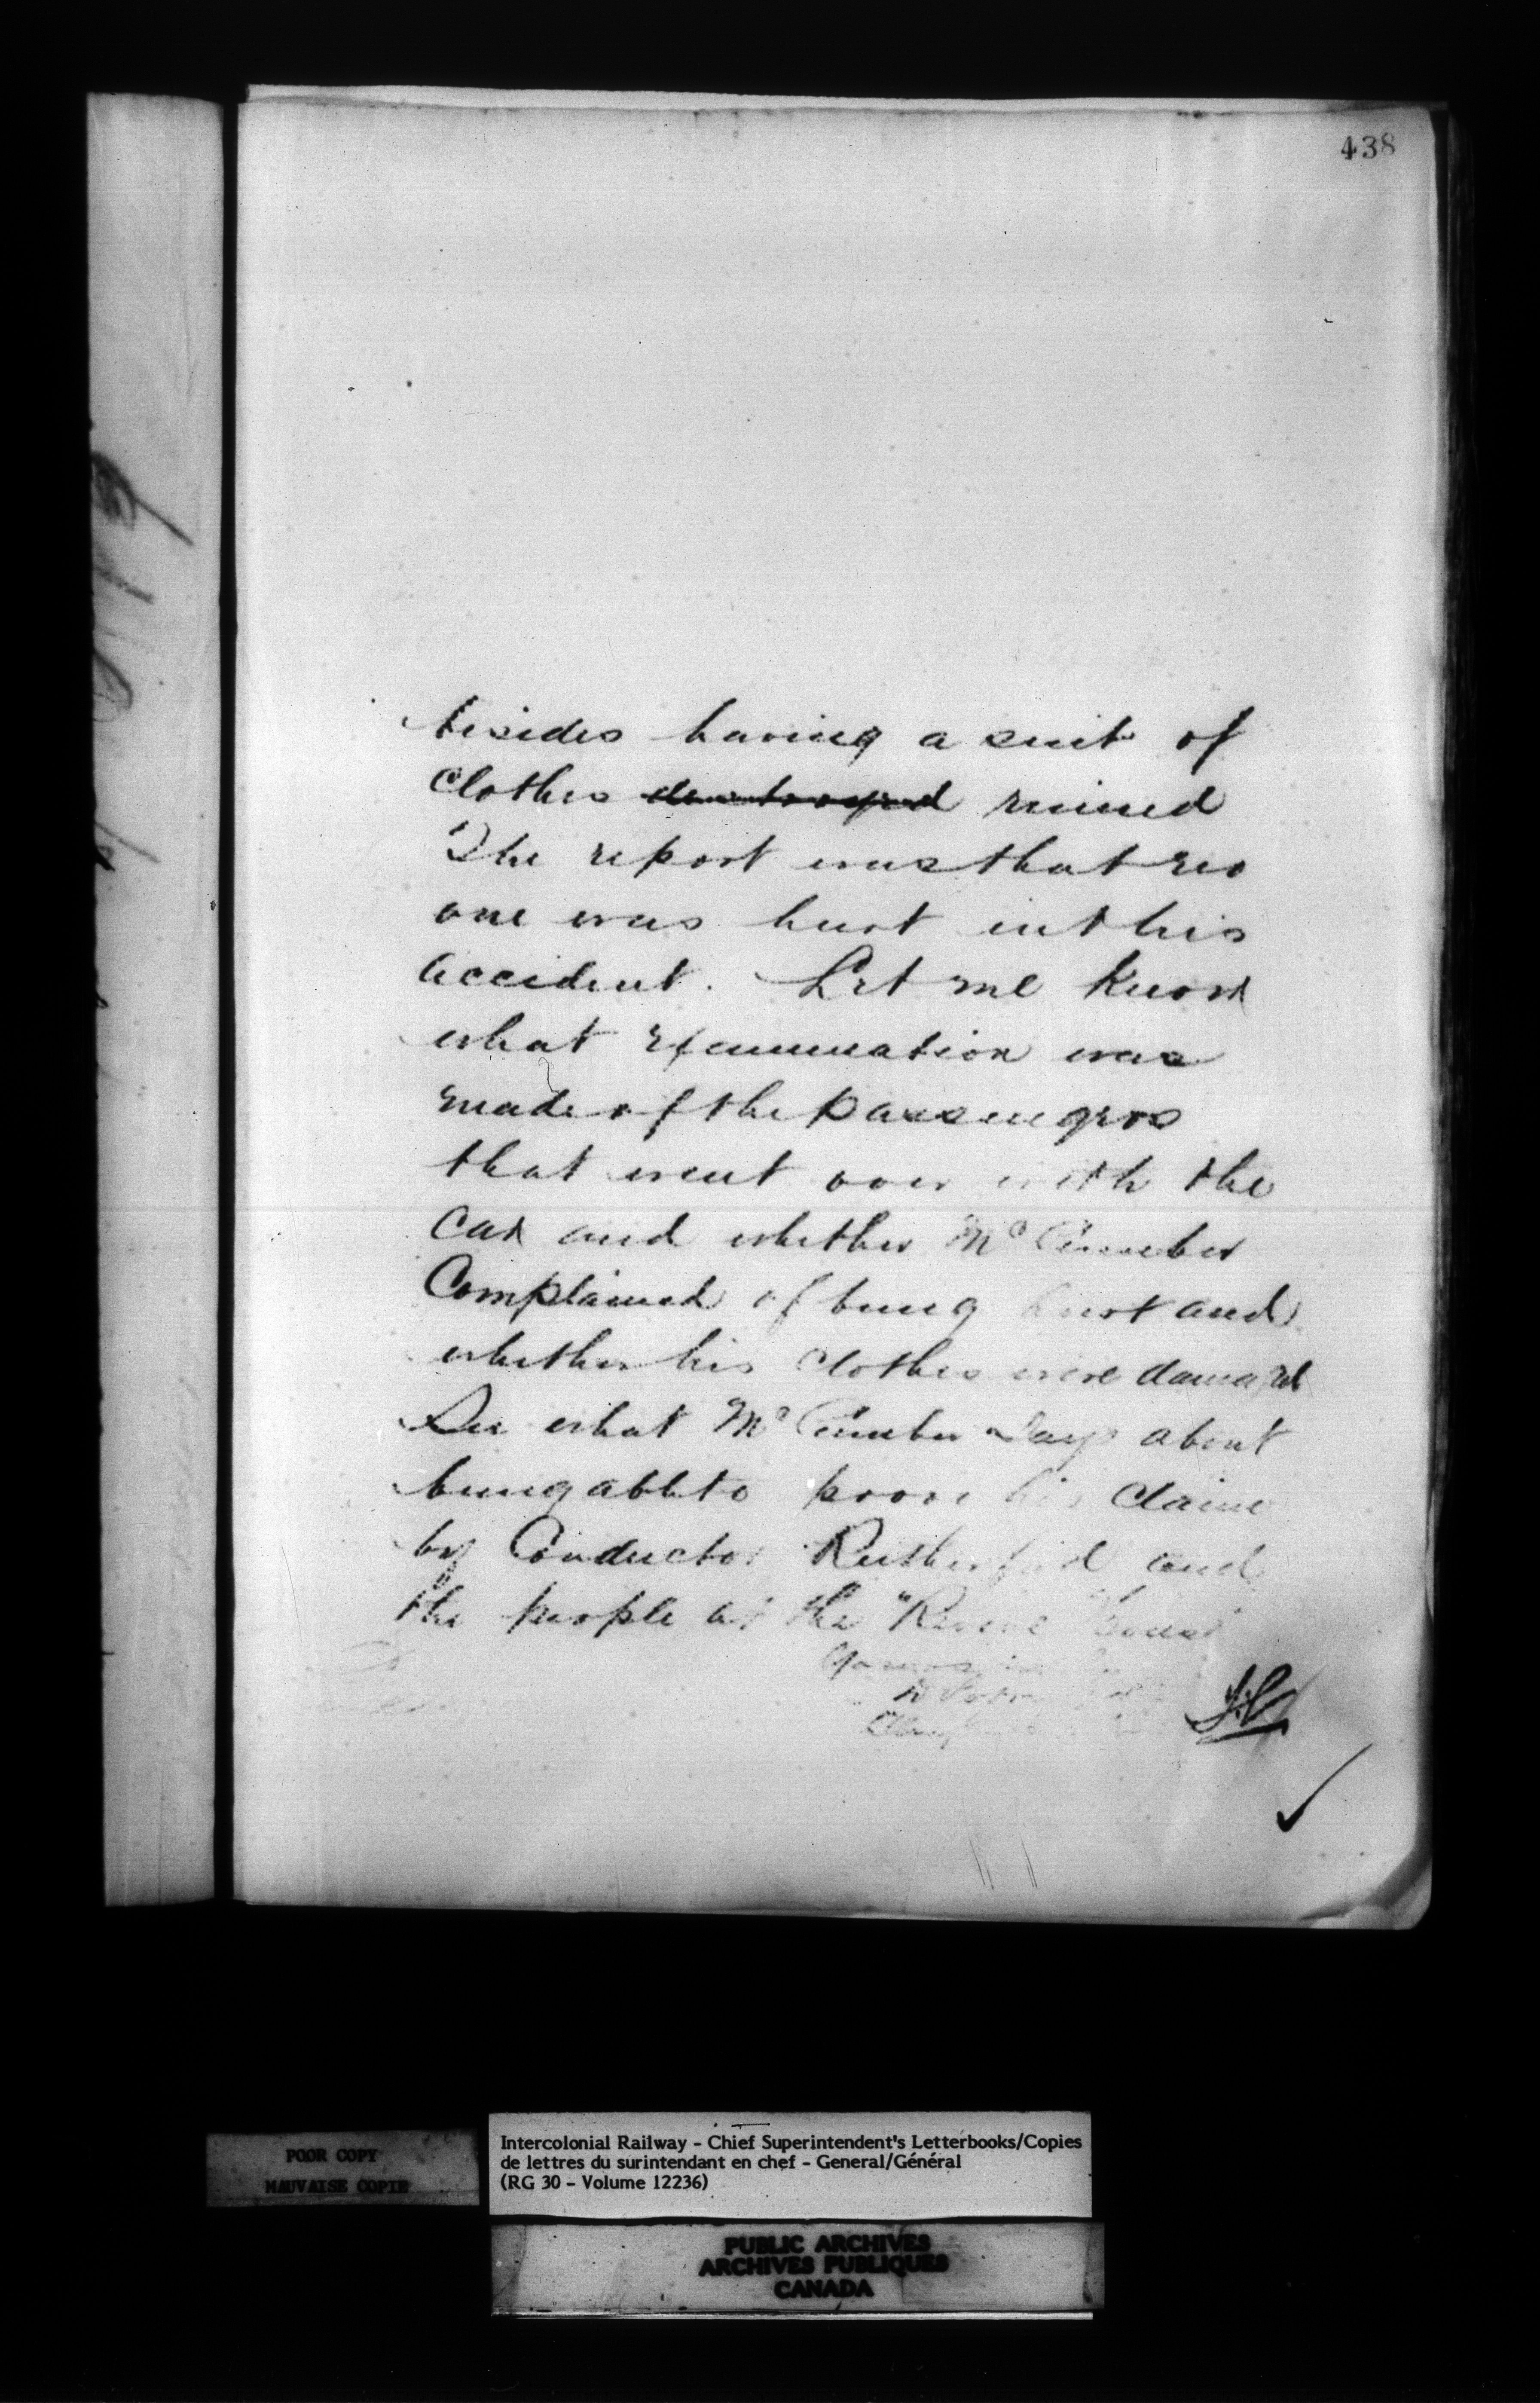 438
besides having a suit of
Clothes destroyed ruined
The report was that no
one was hurt in this
accident. Let me know
what examination was
made of the passengers
that went over with the
car and whether McCumber
Complained of being hurt and
whether his clothes were damaged
See what McCumber says about
being able to prove his claim
by Conductor Rutherford and
the people at the "Revere House"
POOR COPY
MAUVAISE COPIE
Intercolonial Railway - Chief Superintendent's Letterbooks/Copies
de lettres du surintendant en chef - General/Général
(RG 30 - Volume 12236)
PUBLIC ARCHIVES
ARCHIVES PUBLIQUES
CANADA